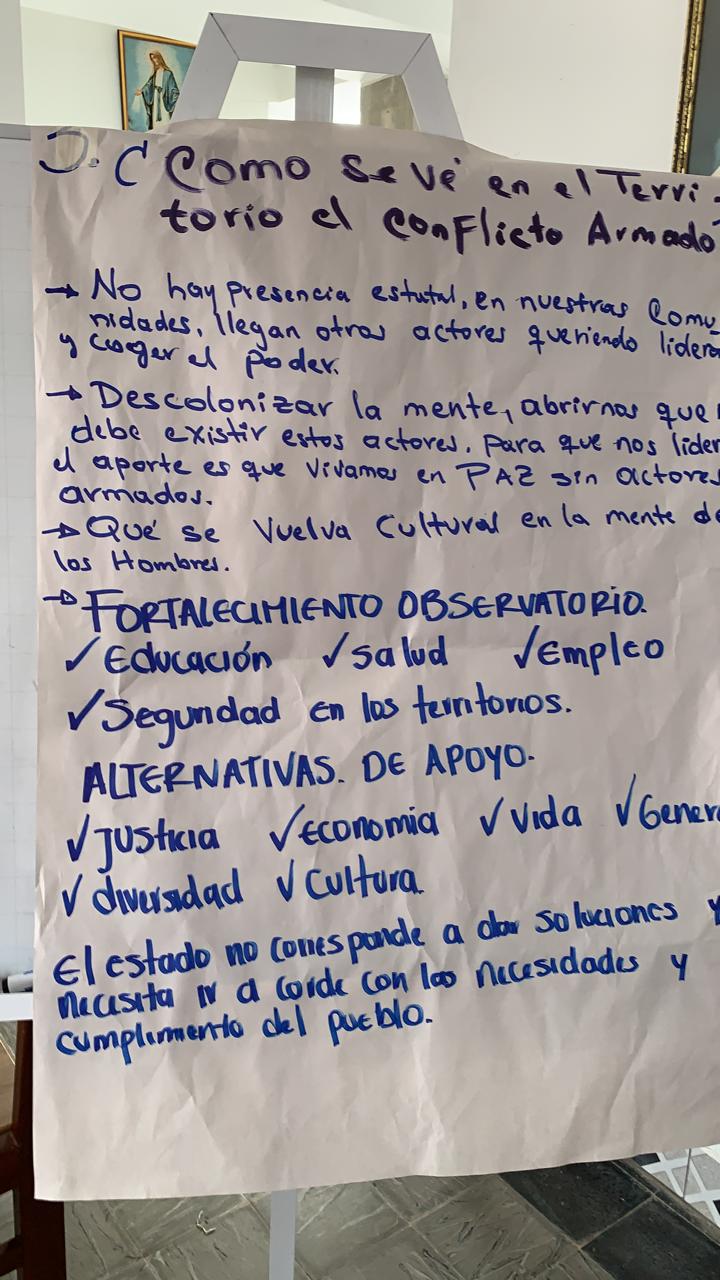 3. ¿Como se vé en el Terri-
torio el conflicto Armado?
→ No hay presencia estatal, en nuestras Comu
nidades, llegan otros actores queriendo lidera
y coger el poder.
→ Descolonizar la mente, abrirnos que
debe existir estos actores, para que nos lider
el aporte es que vivamos en PAZ sin actores
armados.
→ Qué se vuelva cultural en la mente de
los Hombres.
→ FORTALECIMIENTO OBSERVATORIO.
✓ Educación ✓ salud ✓ Empleo
✓ Seguridad en los territorios.
ALTERNATIVAS. DE APOYO.
✓ justicia ✓ economia ✓ vida ✓ Gener
✓ diversidad ✓ Cultura
El estado no corresponde a dar soluciones y
necesita ir a corde con las necesidades y
cumplimento del pueblo.